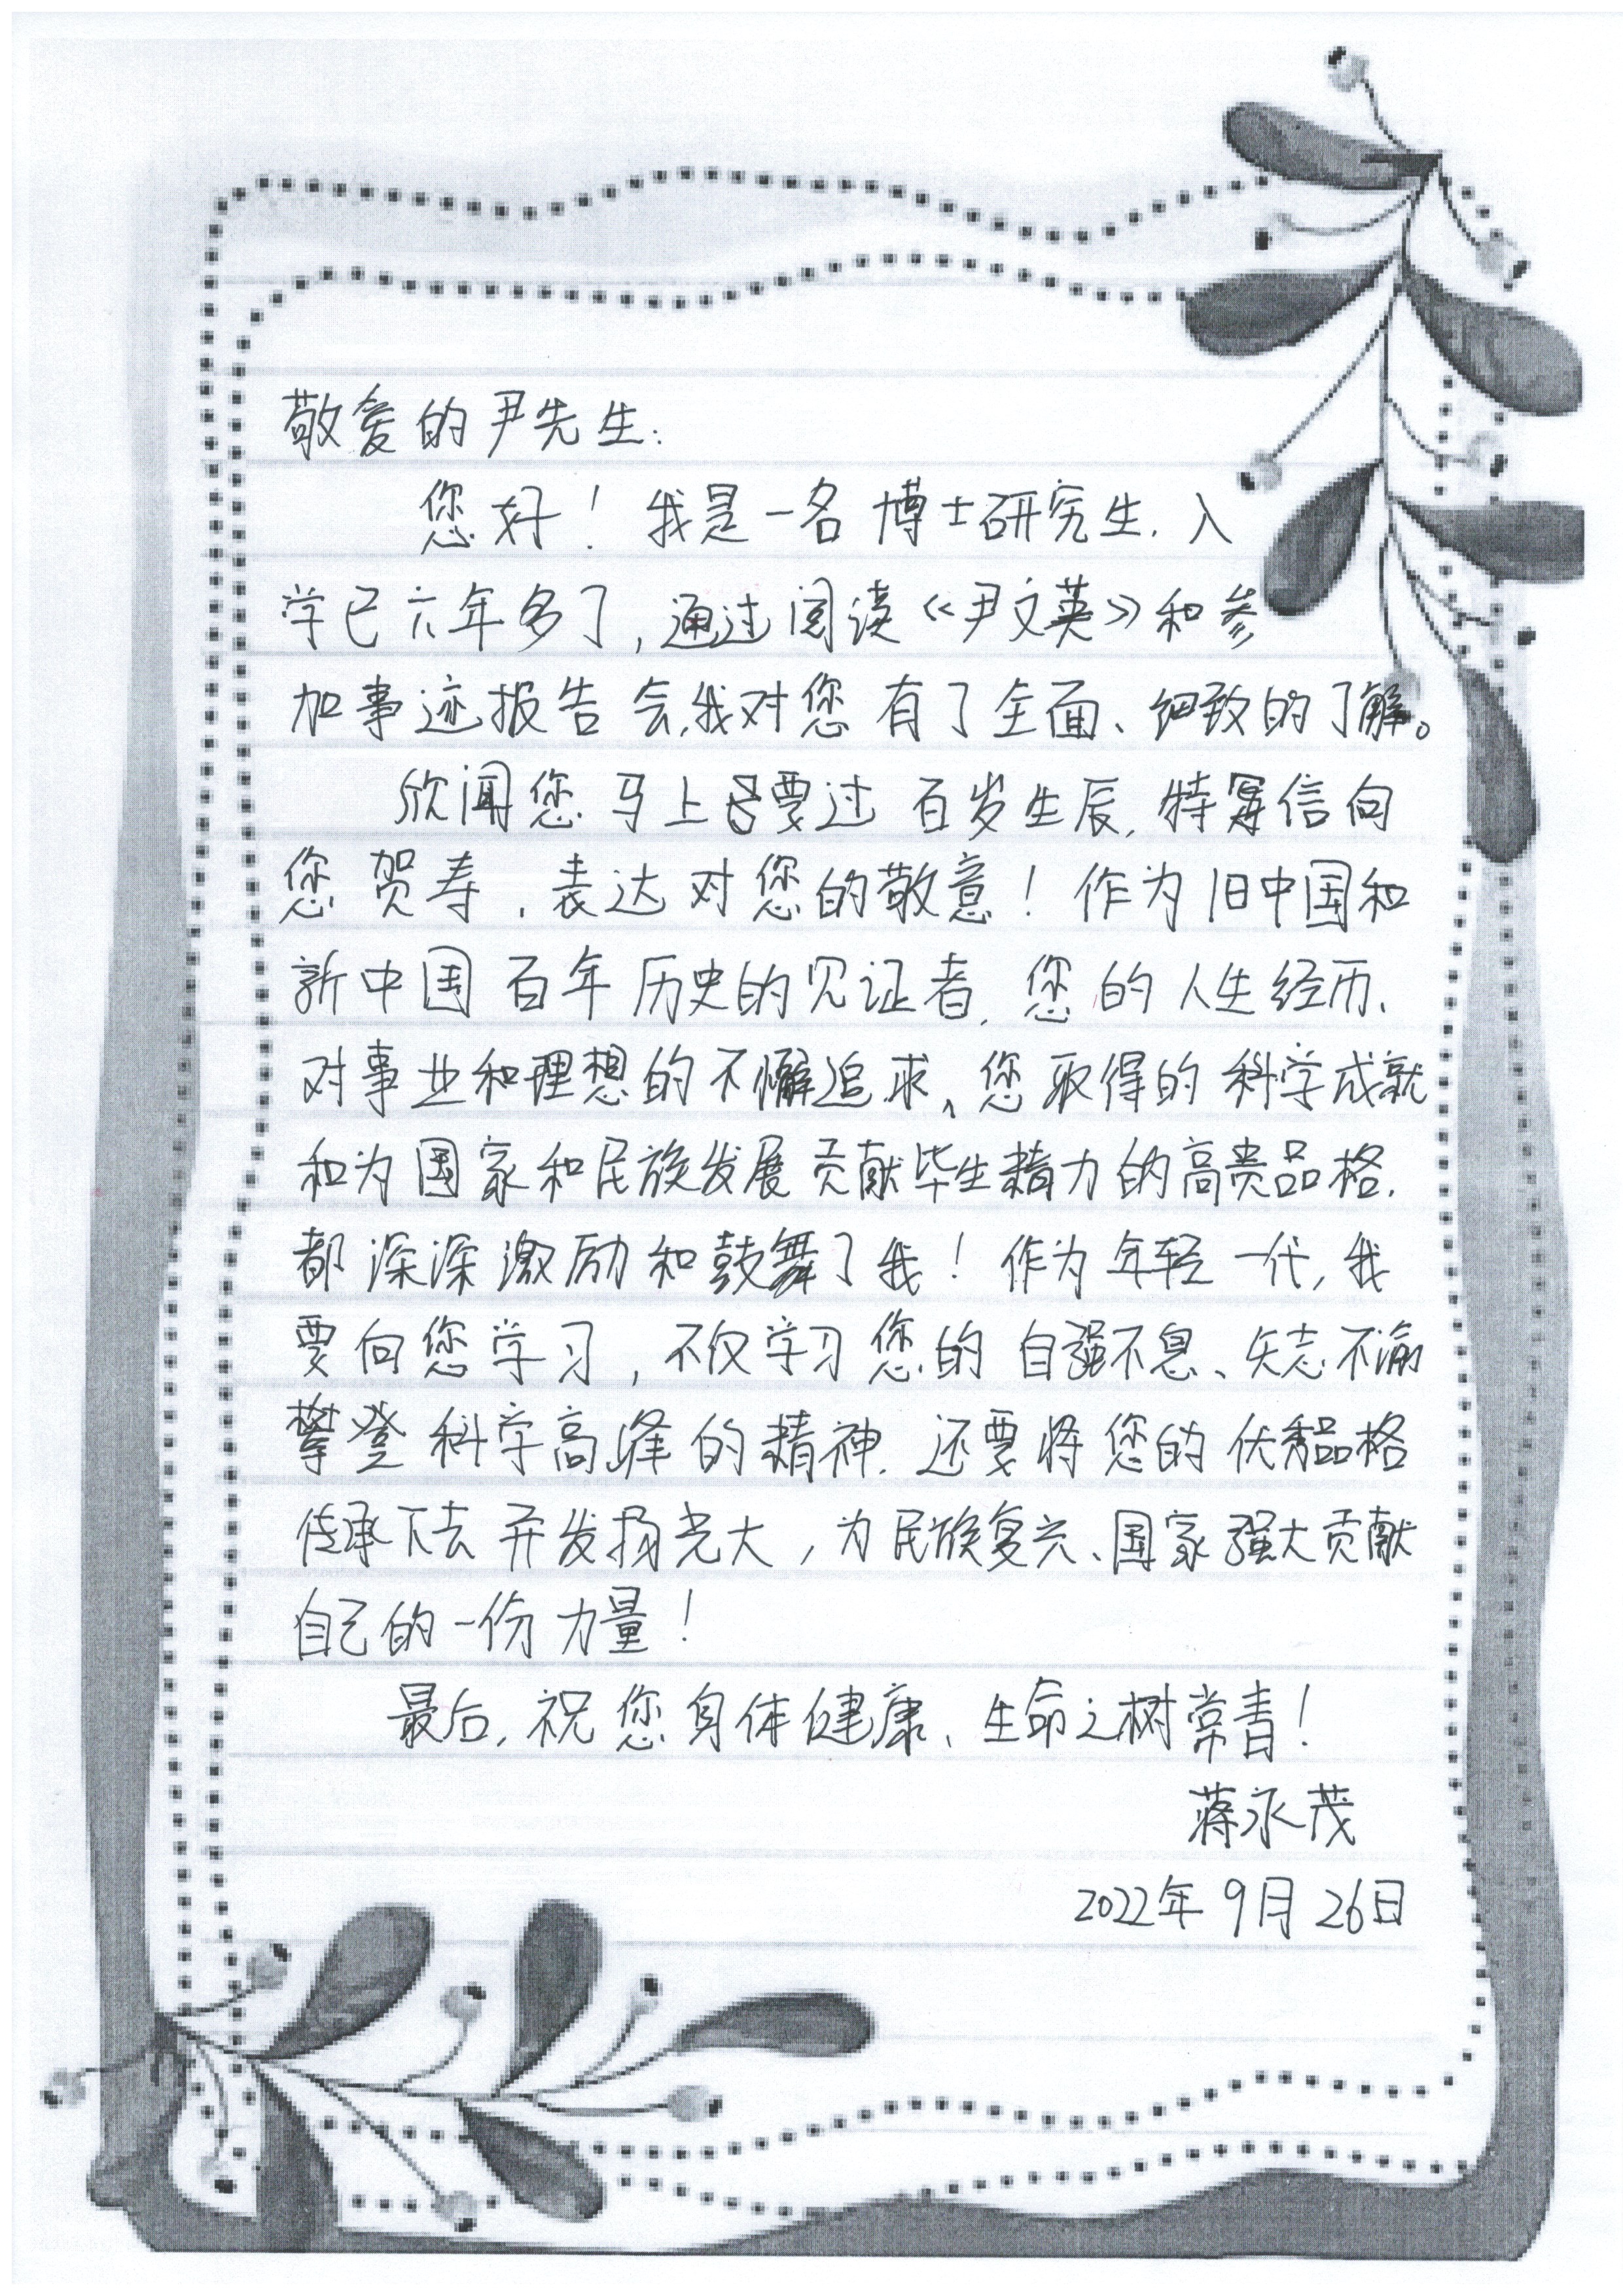 敬爱的尹先生：
您好！我是一名博士研究生，入
学已六年多了，通过阅读《尹文英》和参
加事迹报告会，我对您有了全面、细致的了解。
欣闻您马上要过百岁生辰，特写信向
您贺寿，表达对您的敬意！作为旧中国和
新中国百年历史的见证者，您的人生经历、
对事业和理想的不懈追求、您取得的科学成就
和为国家和民族发展贡献毕生精力的高贵品格，
都深深激励和鼓舞了我！作为年轻一代，我
要向您学习，不仅学习您的自强不息、矢志不渝
攀登科学高峰的精神，还要将您的优秀品格
传承下去并发扬光大，为民族复兴、国家强大贡献
自己的一份力量！
最后，祝您身体健康、生命之树常青！
蒋永茂
2022年9月26日